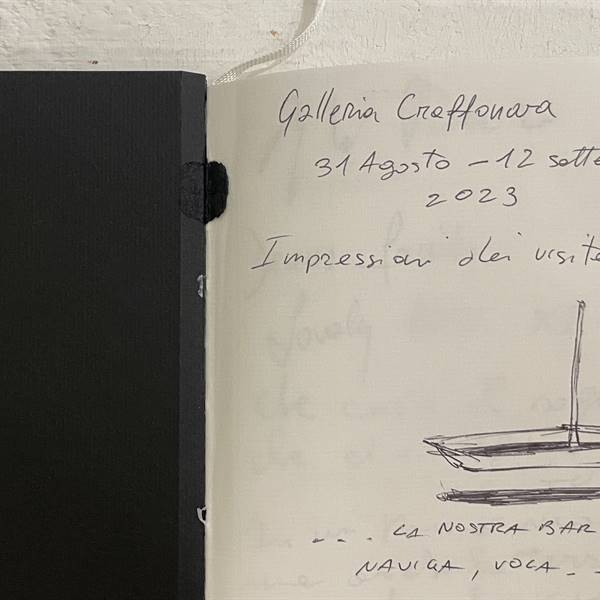 Galleria Craffonara
31 Agosto - 12 sette
2023
Impressioni dei visite
... LA NOSTRA BAR
NAVIGA, VOCA - -